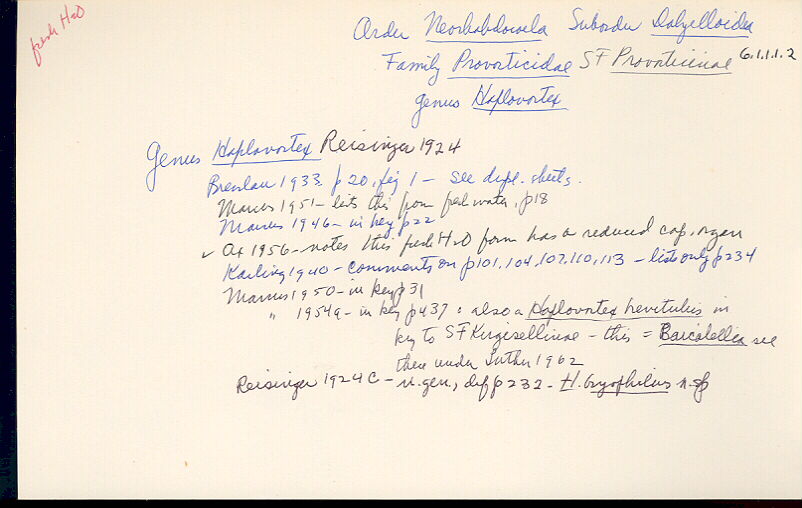 fresh H2O
Order Neorhabdocoela Suborder Dalyellioidea
Family Provorticidae SF Provorticinae 6.1.1.1.2
genus Haplovortex
Genus Haplovortex Reisinger 1924
Bresslau 1933 p20, fig 1 - see dupl. sheets.
Marcus 1951 - lists this from fresh water, p18
Marcus 1946 - in key p22
✓ Ax 1956 - notes this fresh H2O form has a reduced cop. organ
Karling 1940 - comments on p101, 104, 107, 110, 113 - lists only p234
Marcus 1950 - in key p31
" 1954a - in key p437: also a Haplovortex brevitubus in
key to SF Kirgisellinae - this = Baicalellia see
there under Luther 1962
Reisinger 1924C - n. gen., def p232 - H. bryophilus n.sp